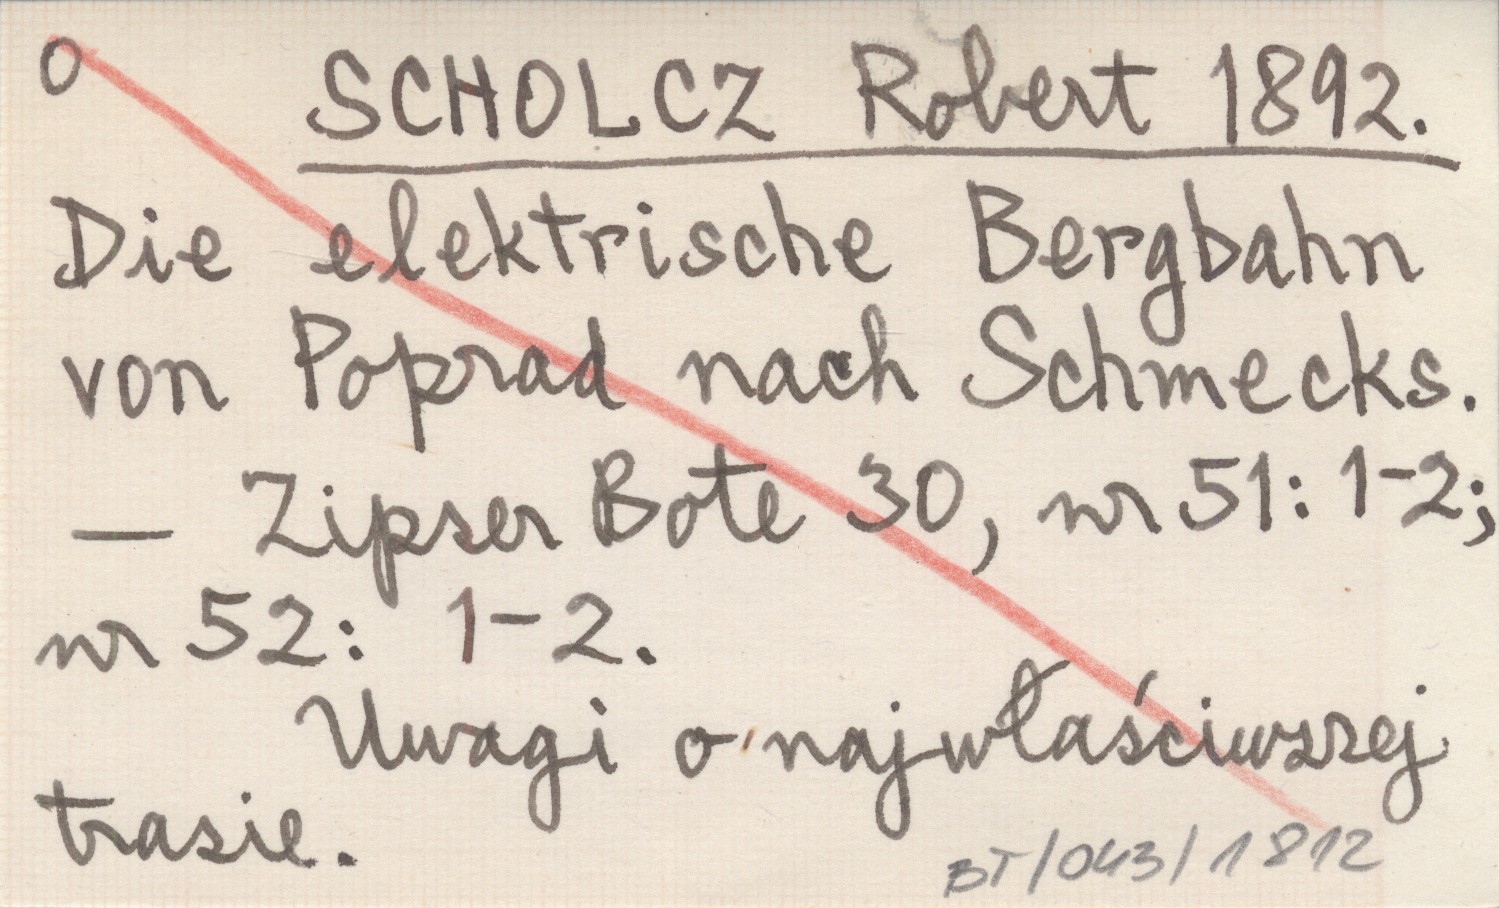 o SCHOLCZ Robert 1892.
Die elektrische Bergbahn
von Poprad nach Schmecks.
— Zipser Bote 30, nr 51: 1-2;
nr 52: 1-2.
Uwagi o najwłaściwszej
trasie.
BT/043/1812